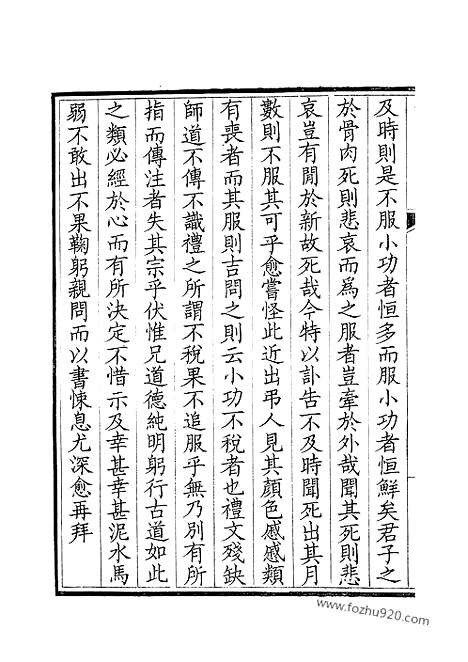 及時則是不服小功者恒多而服小功者恒鮮矣君子之
於骨肉死則悲哀而為之服者豈牽於外哉聞其死則悲
哀豈有閒於新故死哉今特以訃告不及時聞死出其月
數則不服其可乎愈嘗怪此近出弔人見其顏色慼慼類
有喪者而其服則吉問之則云小功不稅者也禮文殘缺
師道不傳不識禮之所謂不稅果不追服乎無乃別有所
指而傳注者失其宗乎伏惟兄道德純明躬行古道如此
之類必經於心而有所決定不惜示及幸甚幸甚泥水馬
弱不敢出不果鞠躬親問而以書悚息尤深愈再拜
www.fozhu920.com